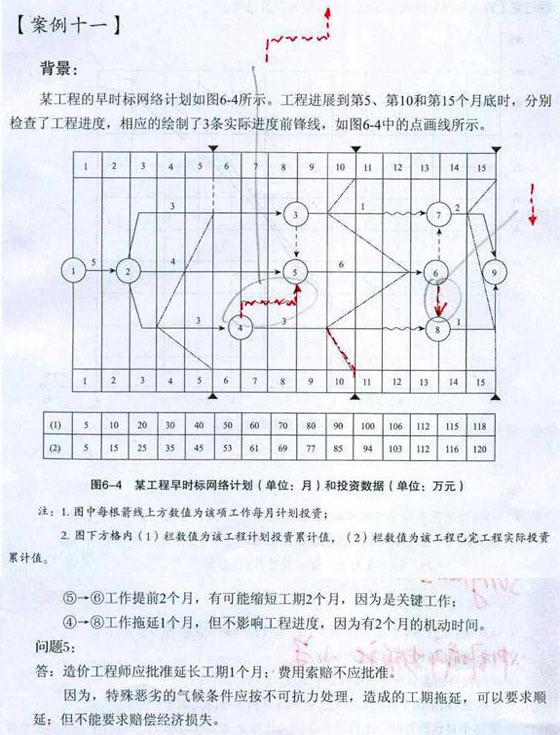 【案例十一】
背景：
某工程的早时标网络计划如图6-4所示。工程进展到第5、第10和第15个月底时，分别
检查了工程进度，相应的绘制了3条实际进度前锋线，如图6-4中的点画线所示。
1 2 3 4 5 6 7 8 9 10 11 12 13 14 15
3 3 1 7 2
1 5 2 4 5 6 6 9
3 4 3 8 1
1 2 3 4 5 6 7 8 9 10 11 12 13 14 15
(1) 5 10 20 30 40 50 60 70 80 90 100 106 112 115 118
(2) 5 15 25 35 45 53 61 69 77 85 94 103 112 116 120
图6-4 某工程早时标网络计划（单位：月）和投资数据（单位：万元）
注：1. 图中每根箭线上方数值为该项工作每月计划投资；
2. 图下方格内（1）栏数值为该工程计划投资累计值，（2）栏数值为该工程已完工程实际投资
累计值。
⑤→⑥工作提前2个月，有可能缩短工期2个月，因为是关键工作；
④→⑧工作拖延1个月，但不影响工程进度，因为有2个月的机动时间。
问题5:
答：造价工程师应批准延长工期1个月；费用索赔不应批准。
因为，特殊恶劣的气候条件应按不可抗力处理，造成的工期拖延，可以要求顺
延；但不能要求赔偿经济损失。